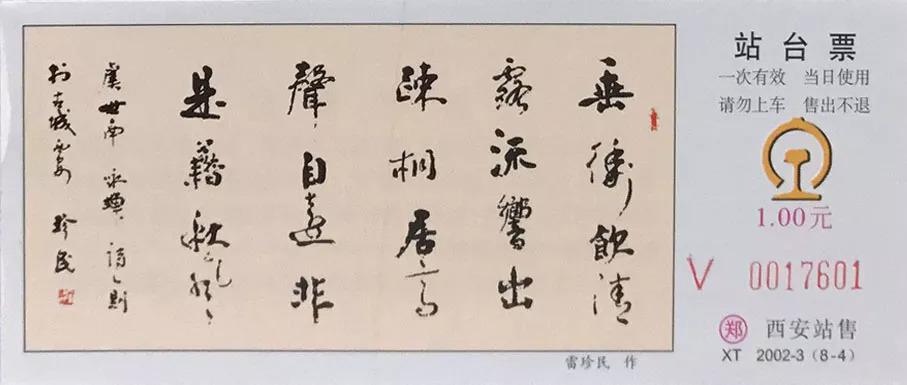 垂緌飲清
露流響出
疎桐居高
聲自遠非
是籍秋風
虞世南 咏蟬 詩一則
於古城西安 珍民
雷珍民 作
站台票
一次有效 当日使用
请勿上车 售出不退
1.00元
V 0017601
郑 西安站售
XT 2002-3(8-4)